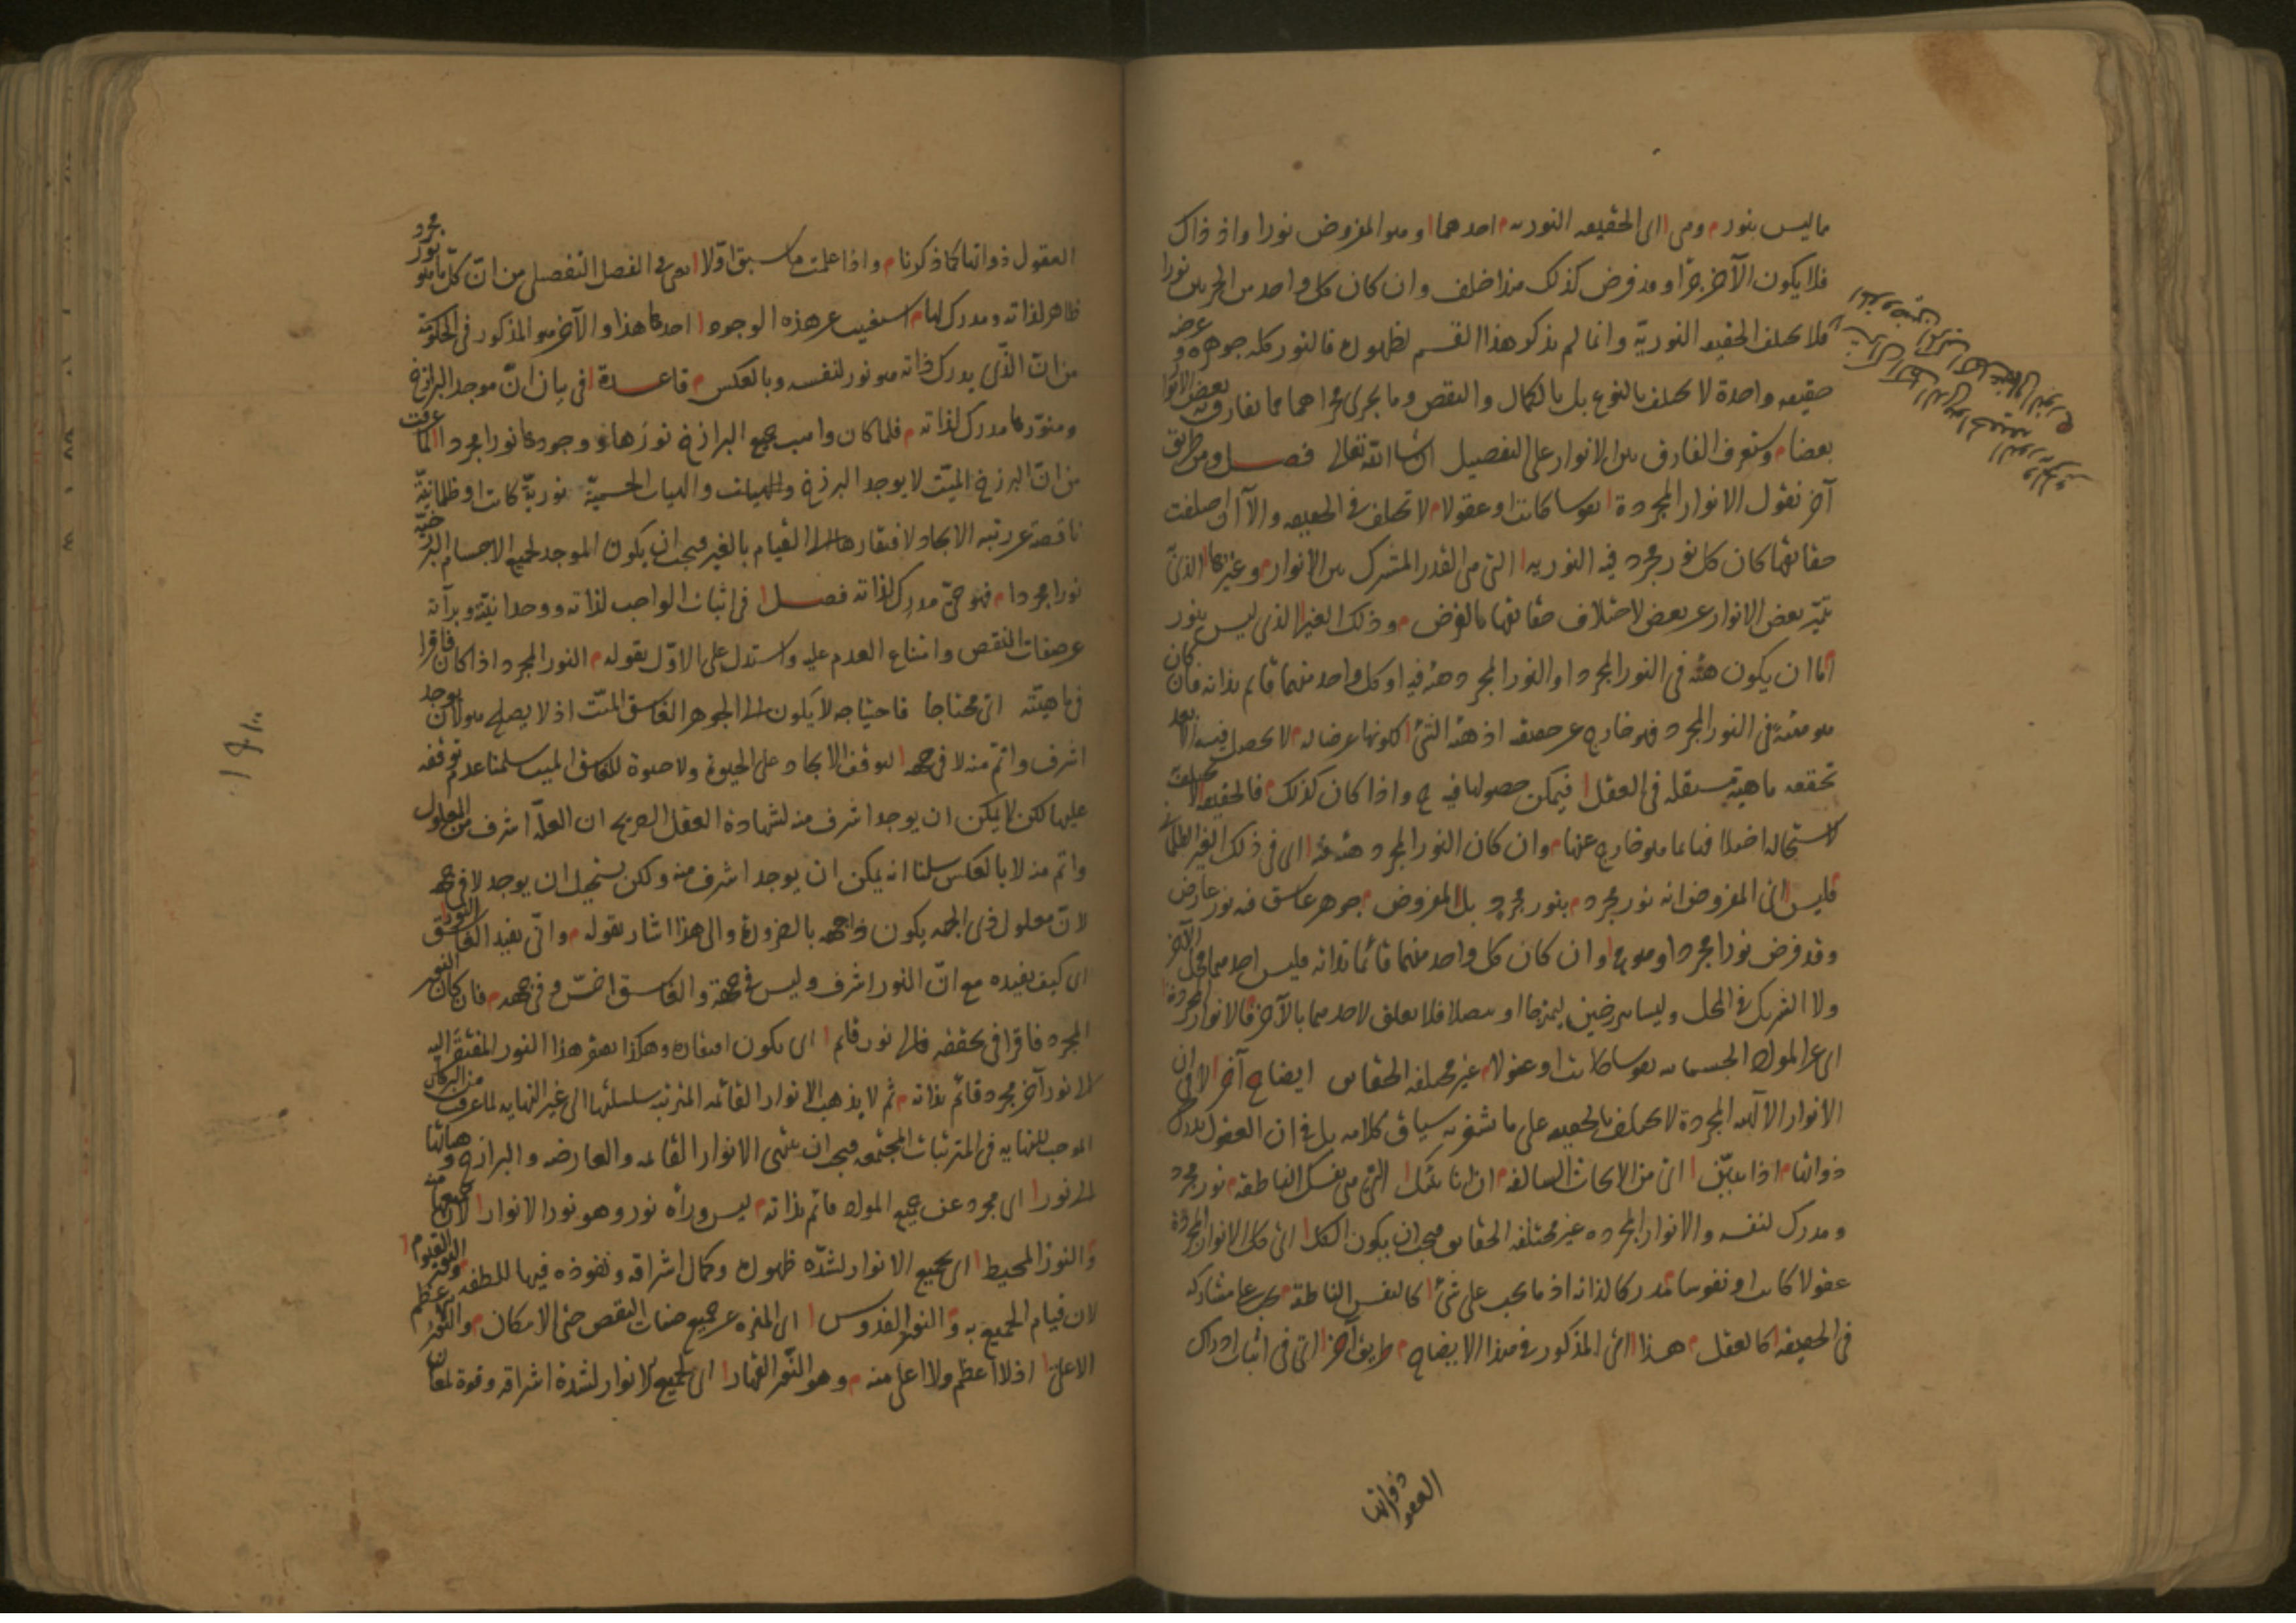 ما ليس بنور م وهى ا اى الحقيقه النوريه م احدهما ا وهو المفروض نورا واذ ذاك
فلا يكون الآخر جزا وقد فرض كذلك هذا خلف وان كان كل واحد من الجزءين نورا
فلا يختلف الحقيقه النوريّة وانما لم يذكر هذا القسم لظهوره فالنور كله جوهره وعرضه
حقيقه واحدة لا يختلف بالنوع بل بالكمال والنقص وما يجرى مجراهما مما يفارق به بعض الانوار
بعضا م وستعرف الفارق بين الانوار على التفصيل ان شا الله تعالى فصل ومن طريق
آخر نقول الانوار المجردة ا نفوسا كانت او عقولا م لا تختلف فى الحقيقه والا ا ان اختلفت
حقائقها كان كل نور مجرد فيه النوريه ا التى هى القدر المشترك بين الانوار م وغيرها ا الذى
تميّز بعض الانوار عن بعض لاختلاف حقائقها بالفرض م وذلك الغير ا الذى ليس بنور
اما ان يكون هيئه فى النور المجرد او النور المجرد هيئه فيه او كل واحد منهما قائم بذاته فان كان
هو هيئة فى النور المجرد فهو خارج عن حقيقته اذ هيئة الشئ ا لكونها عرضا له م لا يحصل فيه الا بعد
تحققه ماهية مستقله فى العقل ا فيمكن حصولها فيه ح واذا كان كذلك م فالحقيقه لا تختلف
لاستحاله اختلافها بما هو خارج عنها م وان كان النور المجرد هيئة فيه ا اى فى ذلك الغير الظلمانى
فليس ا اى المفروض انه نور مجرد م بنور مجرد بل المفروض م جوهر غاسق فيه نور عارض
وقد فرض نورا مجردا وهو مح ا وان كان كل واحد منهما قائما بذاته فليس احدهما محل الآخر
ولا الشريك فى المحل وليسا ببرزخين ليمتزجا او يتصلا فلا تعلق لاحدهما بالآخر فالانوار المجردة
اى عن المواد الجسمانيه نفوسا كانت او عقولا م غير مختلفه الحقائق ايضاح آخر ا لا فى ان
الانوار الالهيه المجردة لا يختلف بالحقيقه على ما تشعر به سياق كلامه بل فى ان العقول تدرك
ذواتها م اذا تبيّن ا اى من الابحاث السالفه م ان انائيتك ا التى هى نفسك الناطقه م نور مجرد
ومدرك لنفسه والانوار المجرده غير مختلفه الحقائق فيجب ان يكون الكل ا اى كل الانوار المجردة
عقولا كانت او نفوسا م مدركا لذاته اذ ما يجب على شئ ا كالنفس الناطقة م يجب على مشاركه
فى الحقيقه ا كالعقل م هذا ا اى المذكور فى هذا الايضاح م طريق آخر ا اى فى اثبات ادراك
العقول ذواتها
العقول ذواتها كما ذكرنا م واذا علمت ما سبق اولا ا يعنى فى الفصل التفصيلى من ان كلّ ما هو نور مجرد
ظاهر لذاته ومدرك لها م استغنيت عن هذه الوجوه ا احدها هذا والآخر هو المذكور فى الحكومة
من انّ الذى يدرك ذاته هو نور لنفسه وبالعكس م قاعدة ا فى بيان انّ موجد البرازخ
ومنوّرها مدرك لذاته م فلما كان واهب جميع البرازخ نورها ووجودها نورا مجردا ا لما عرفت
من انّ البرزخ الميّت لا يوجد البرزخ والهيئات الحسيّة نوريّة كانت او ظلمانيّة
ناقصة عن رتبه الايجاد لافتقارها الى القيام بالغير فيجب ان يكون الموجد لجميع الاجسام البرزخيّة
نورا مجردا م فهو حىّ مدرك لذاته فصل ا فى اثبات الواجب لذاته ووحدانيّته وبرآته
عن صفات النقص وامتناع العدم عليه واستدل على الاوّل بقوله م النور المجرد اذا كان فاقرا
فى ماهيته اى محتاجا فاحتياجه لا يكون الى الجوهر الغاسق الميّت اذ لا يصلح هو لان يوجد
اشرف واتم منه لا فى جهه ا لتوقف الايجاد على الحيوة ولا حيوة للغاسق الميت سلمنا عدم توقفه
عليها لكن لا يمكن ان يوجد اشرف منه لشهادة العقل الصريح ان العلّة اشرف من المعلول
واتم منه لا بالعكس سلمنا انه يمكن ان يوجد اشرف منه ولكن يستحيل ان يوجد لا فى جهه
لان معلول ذى الجهه يكون ذا جهه بالضرورة والى هذا اشار بقوله م وانّى يفيد الغاسق النور ا
اى كيف يفيده مع انّ النور اشرف وليس فى جهة والغاسق اخسّ وفى جهه م فان كان النور
المجرد فاقرا فى تحققه فالى نور قائم ا اى يكون افتقاره وهكذا يفتقر هذا النور المفتقر اليه
الى نور آخر مجرد قائم بذاته م ثم لا يذهب الانوار القائمه المترتبه سلسلتها الى غير النهايه لما عرفت من البرهان
الموجب للنهايه فى المترتبات المجتمعه فيجب ان ينتهى الانوار القائمه والعارضه والبرازخ وهيآتها
الى نور ا اى مجرد عن جميع المواد قائم بذاته م ليس وراه نور وهو نور الانوار ا لان جميعها منه
والنور المحيط ا اى بجميع الانوار لشدّه ظهوره وكمال اشراقه ونفوذه فيها للطفه م والنور القيّوم ا
لان قيام الجميع به والنور القدوس ا اى المنزه عن جميع صفات النقص حتى الامكان م والنور الاعظم
الاعلى ا اذ لا اعظم ولا اعلى منه م وهو النّور القهار ا اى لجميع الانوار لشدة اشراقه وقوة لمعان